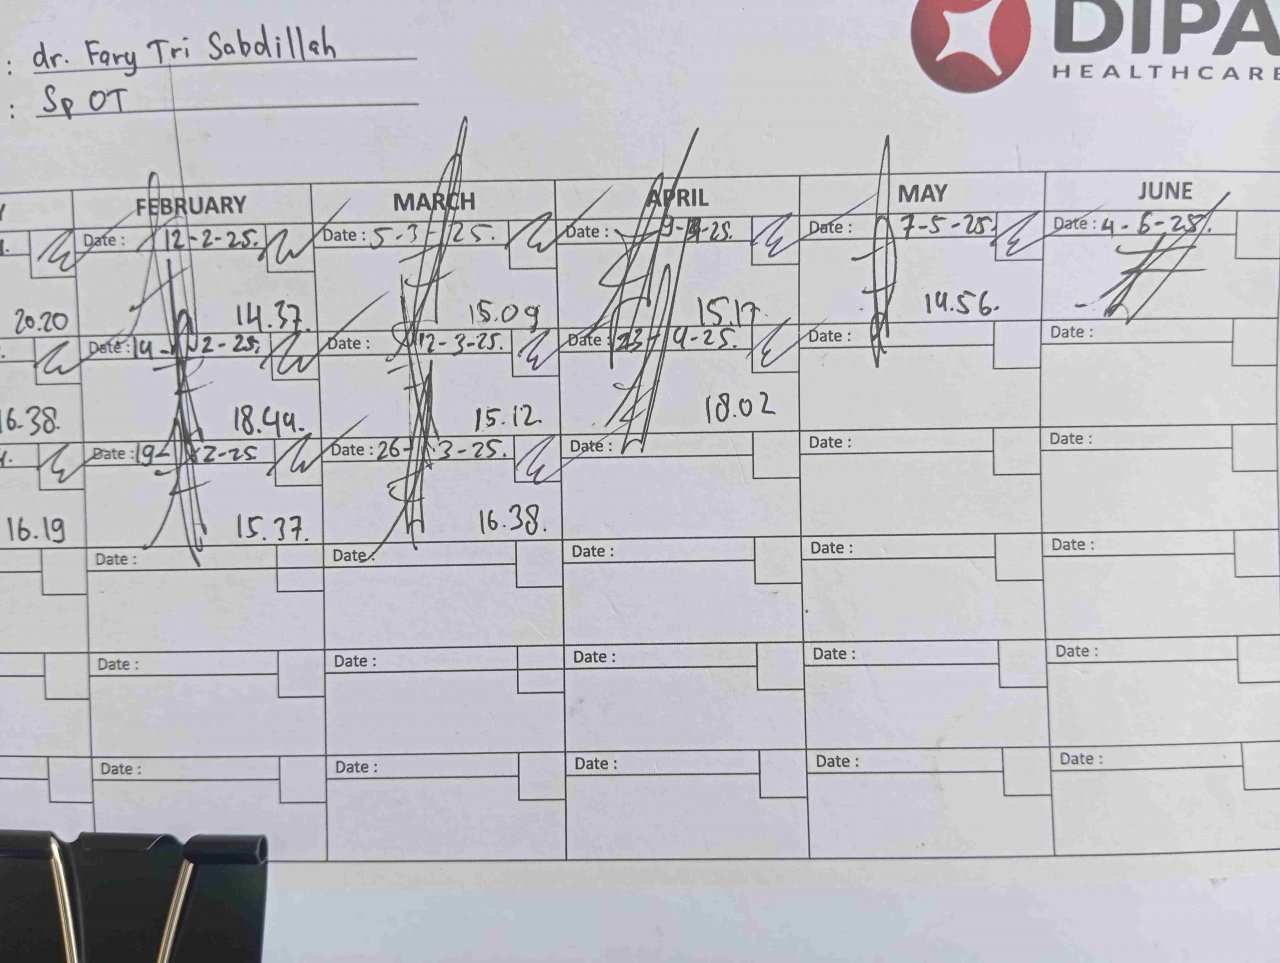 : dr. Fary Tri Sabdillah
: Sp OT
DIPA
HEALTHCARE
FEBRUARY MARCH APRIL MAY JUNE
Date : 12-2-25. Date : 5-3-25. Date : 9-4-25. Date : 7-5-25. Date : 4-6-25.
20.20 14.37. 15.09 15.17 14.56.
Date : 14-2-25. Date : 12-3-25. Date : 23-4-25. Date : Date :
16.38. 18.49. 15.12. 18.02
Date : 19-2-25 Date : 26-3-25. Date : Date : Date :
16.19 15.37. 16.38.
Date : Date : Date : Date : Date :
Date : Date : Date : Date : Date :
Date : Date : Date : Date : Date :